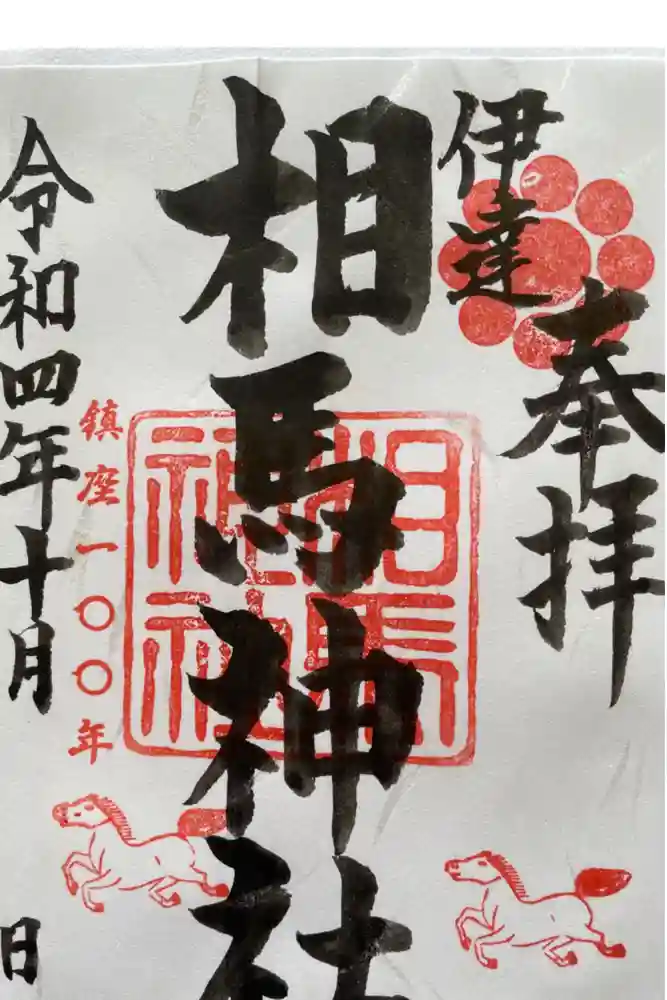 奉拝
伊達
相馬神社
相馬神社
鎮座一〇〇年
令和四年十月
日